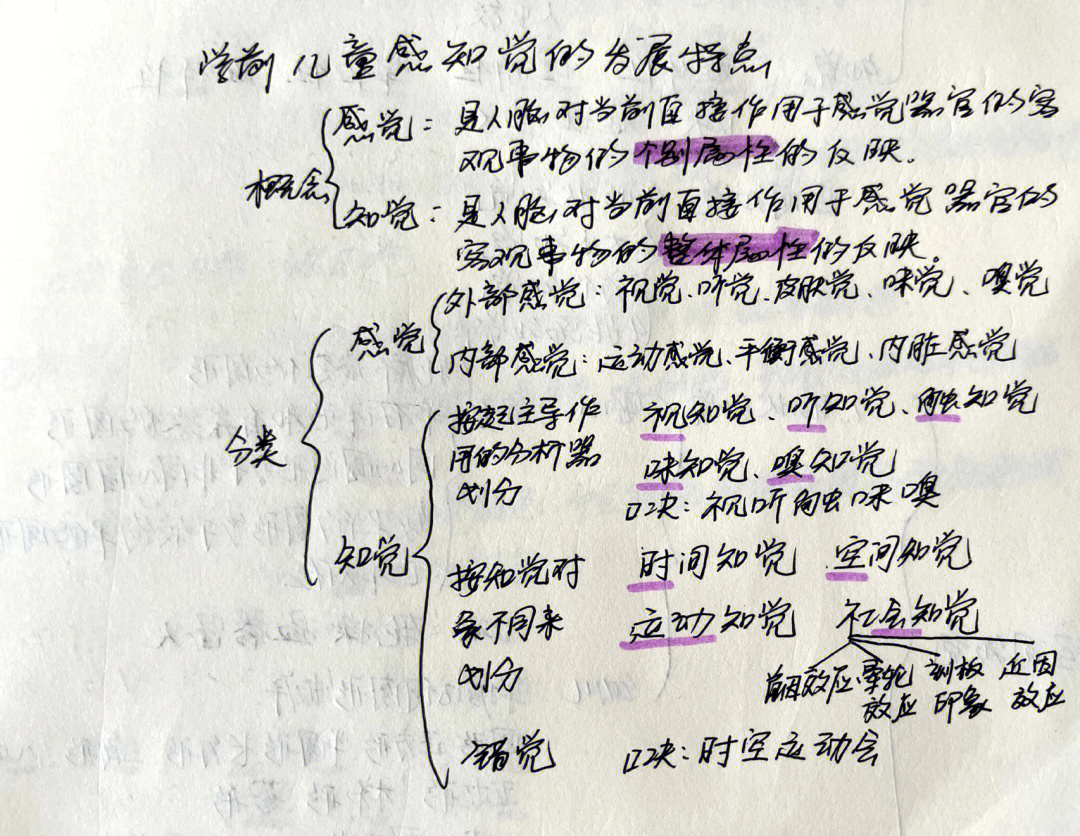 学前儿童感知觉的发展特点
概念
感觉：是人脑对当前直接作用于感觉器官的客
观事物的个别属性的反映。
知觉：是人脑对当前直接作用于感觉器官的
客观事物的整体属性的反映。
分类
感觉
外部感觉：视觉、听觉、皮肤觉、味觉、嗅觉
内部感觉：运动感觉、平衡感觉、内脏感觉
知觉
按起主导作
用的分析器
划分
视知觉、听知觉、触知觉
味知觉、嗅知觉
口决：视听触味嗅
按知觉对
象不同来
划分
时间知觉 空间知觉
运动知觉 社会知觉
首因效应 晕轮效应 刻板印象 近因效应
错觉 口决：时空运动会